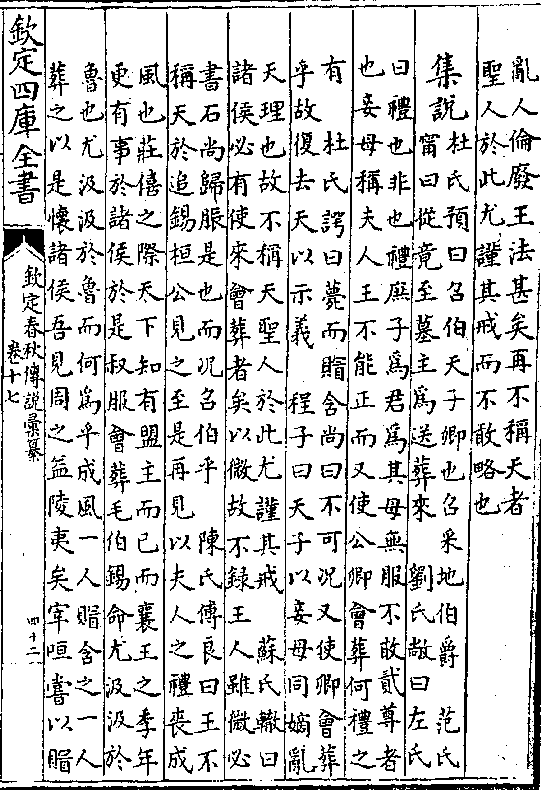 亂人倫廢王法甚矣再不稱天者
聖人於此尤謹其戒而不敢略也
集說杜氏預曰召伯天子卿也召采地伯爵 范氏
甯曰從竟至墓主爲送葬來 劉氏敞曰左氏
曰禮也非也禮庶子爲君爲其母無服不敢貳尊者
也妾母稱夫人王不能正而又使公卿會葬何禮之
有 杜氏諤曰薨而賵含尚曰不可況又使卿會葬
乎故復去天以示義 程子曰天子以妾母同嫡亂
天理也故不稱天聖人於此尤謹其戒 蘇氏轍曰
諸侯必有使來會葬者矣以微故不録王人雖微必
書石尚歸脤是也而況召伯乎 陳氏傅良曰王不
稱天於追錫桓公見之至是再見以夫人之禮喪成
風也莊僖之際天下知有盟主而已而襄王之季年
更有事於諸侯於是叔服會葬毛伯錫命尤汲汲於
魯也尤汲汲於魯而何爲乎成風一人賵含之一人
葬之以是懷諸侯吾見周之益陵夷矣宰咺書以賵
欽定四庫全書
欽定春秋傳說彙纂
卷十七
四十二